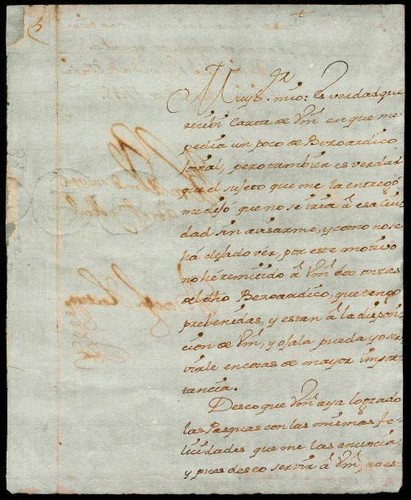 Muy S.r mio: es verdad que
recibi Carta de Vm en que me
pedia un poco de Bezoardico
, pero tambien es verdad
que el sujeto que me la entregó
me dijó que no se iria à esa Ciu
dad sin avisarme, y como no se
há dejado vér, por este motivo
no hé remitido à Vm dos onzas
el dho Bezoardico, que tengo
prebenidas, y estan à la disposi
cion de Vm, y ojala pueda yo ser
virle en cosas de mayor impor
tancia.
Deseo que Vm aya logrado
las Pasquas con las mismas fe
licidades que me las anuncia,
y pues deseo servir à Vm,